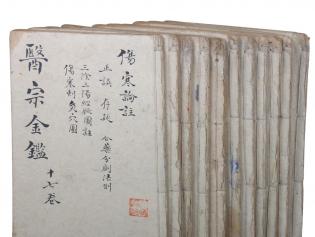 傷寒論註
正誤 存疑 合藥分劑法則
三陰三陽經脈圖註
傷寒刺灸穴圖
醫宗金鑑
十七卷